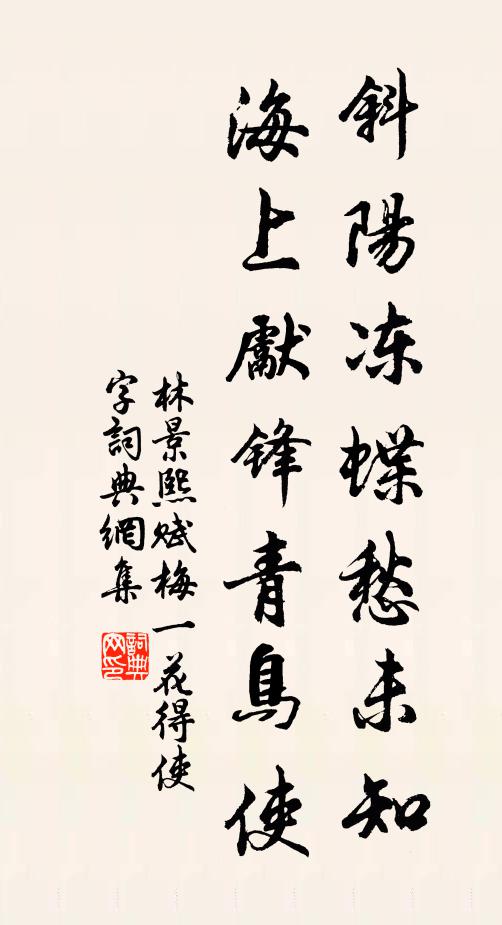 斜陽冻蝶愁未知
海上獻鋒青鳥使
林景熙赋梅一花得使
字詞典網集
詞典网印